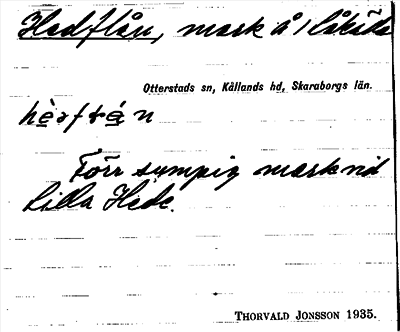 Hedflån, mark å
Otterstads sn, Kållands hd, Skaraborgs län.
Förr sumpig mark vid
Lilla Hede.
THORVALD JONSSON 1935.